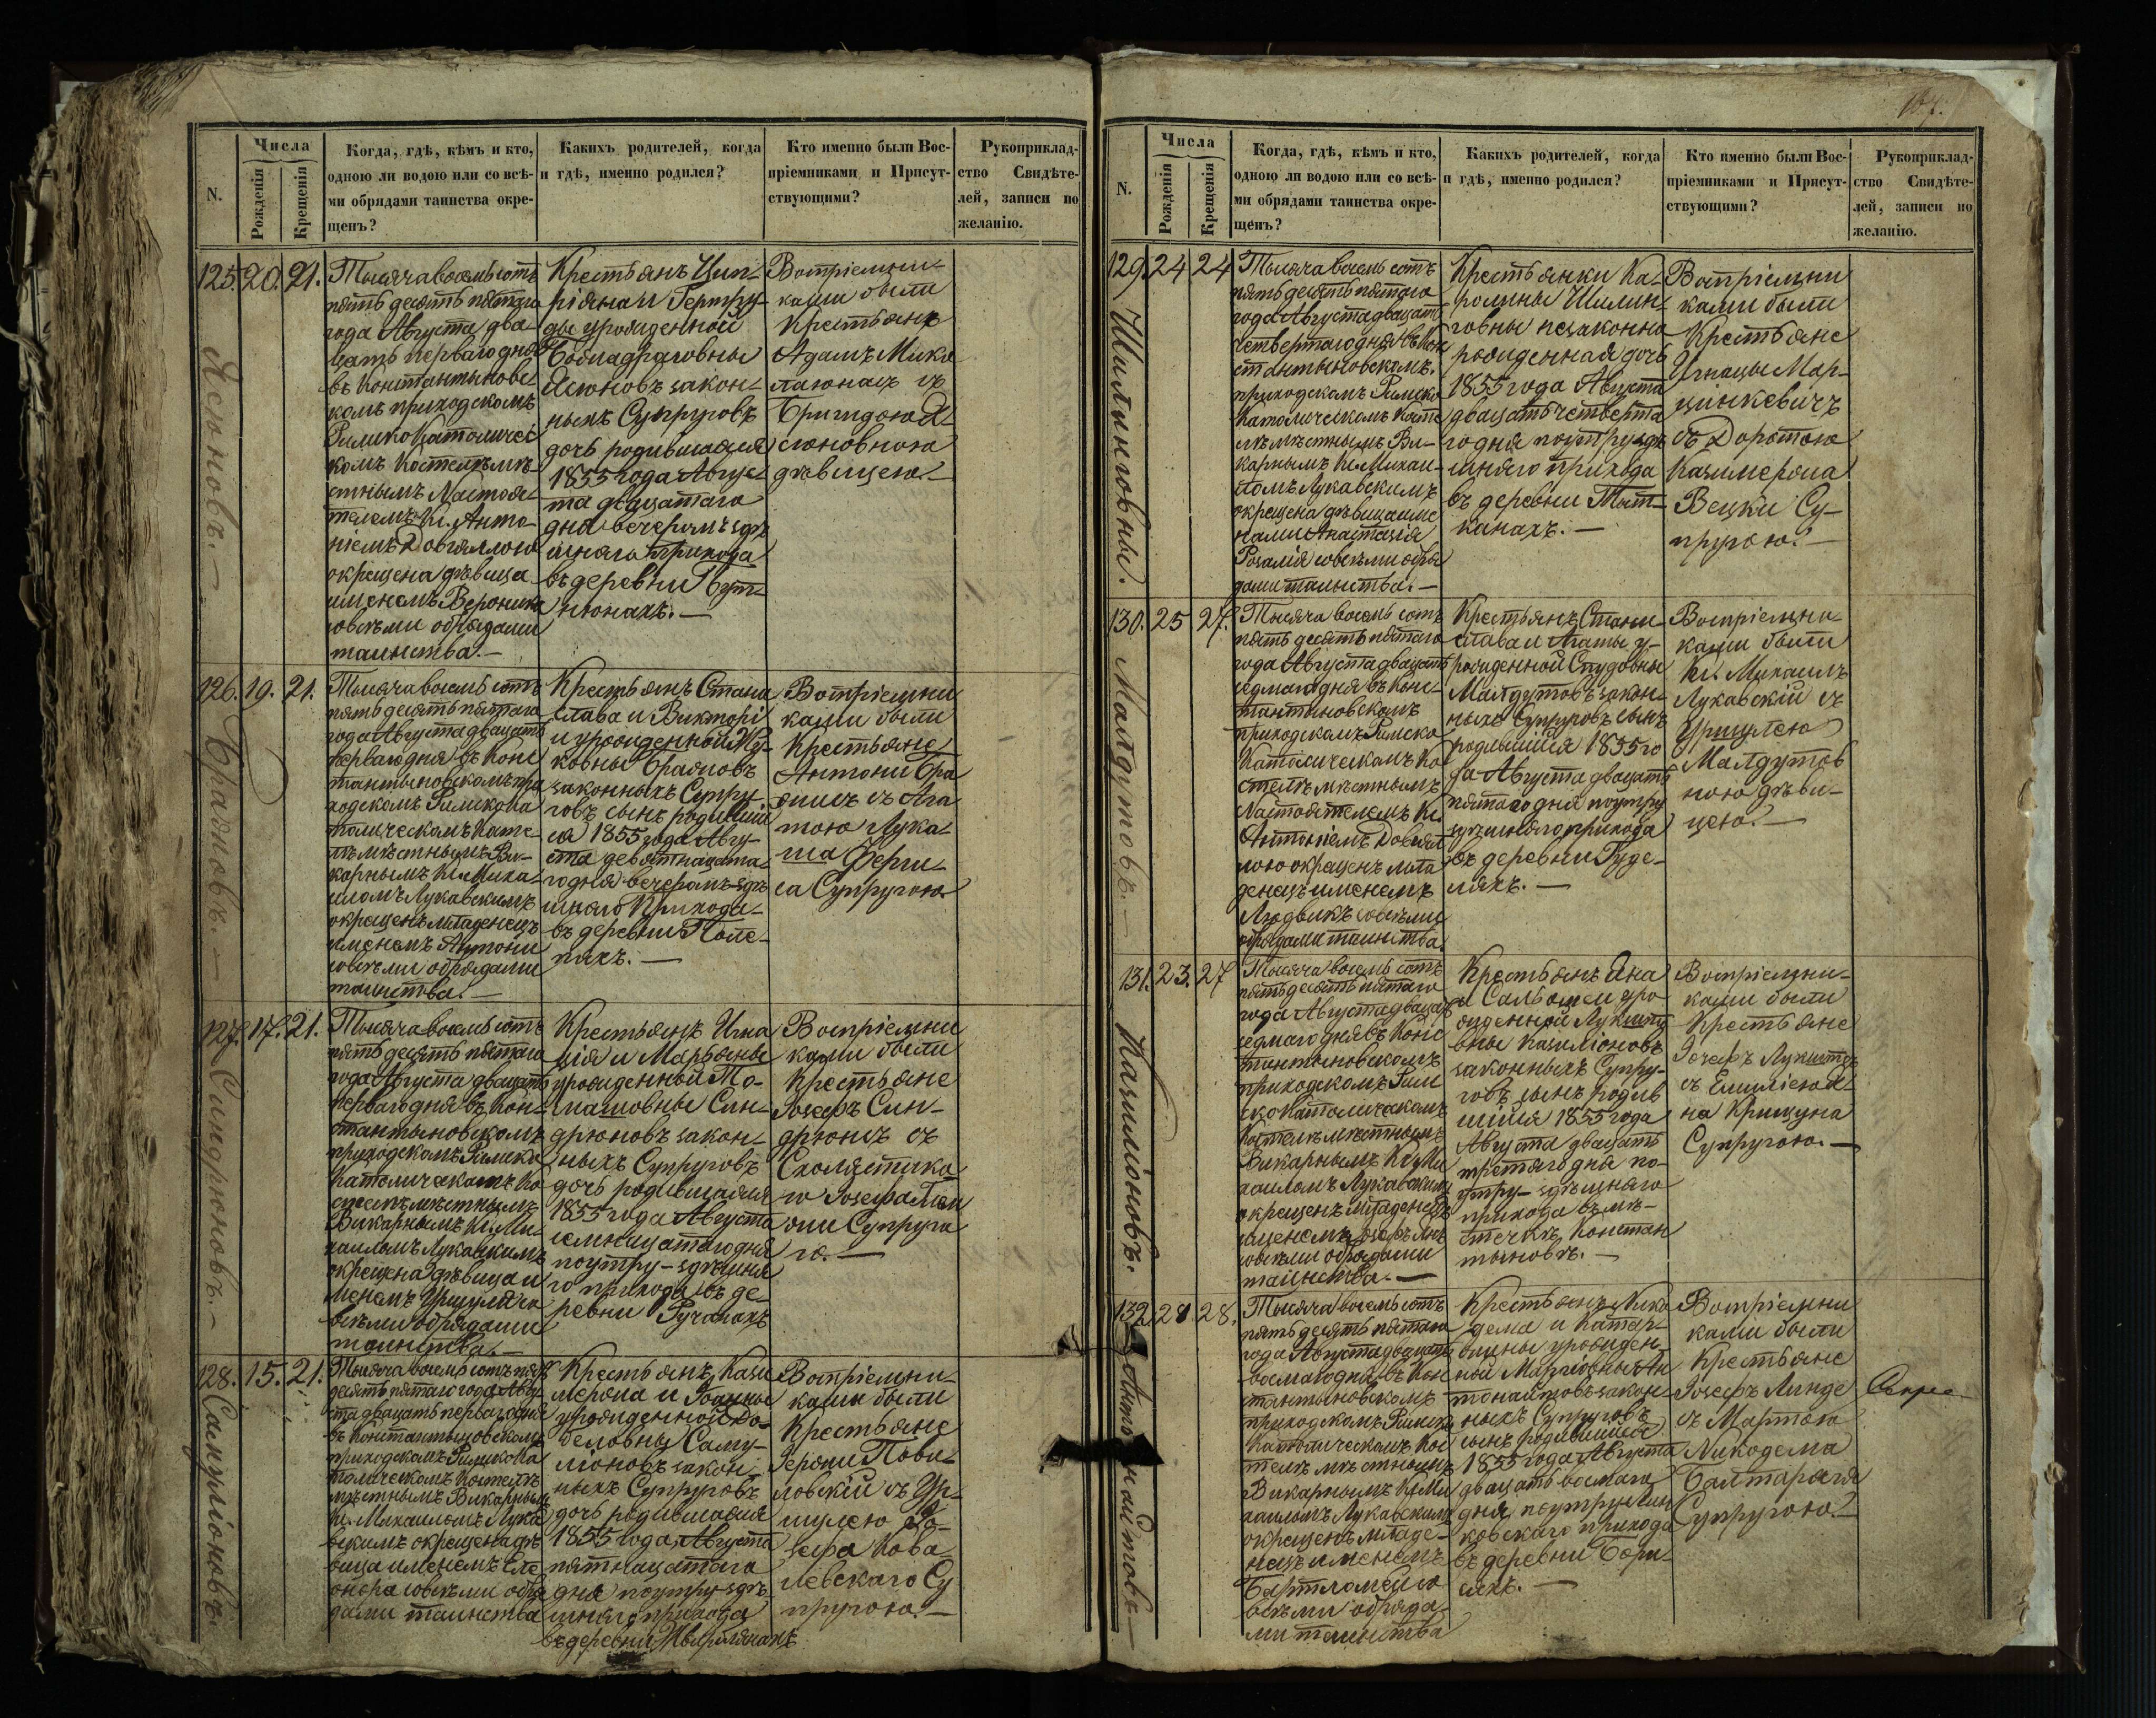 N.
Числа
Рожденія
Крещенія
Когда, гдѣ, кѣмъ и кто,
одною ли водою или со всѣ-
ми обрядами таинства окре-
щенъ?
Какихъ родителей, когда
и гдѣ, именно родился?
Кто именно были Вос-
пріемниками и Присут-
ствующими?
Рукоприклад-
ство Свидѣте-
лей, записи по
желанію.
125. 20. 21.
Тысяча восемь сотъ
пять десять пятаго
года Августа два-
цать перваго дня
въ Константиновс
комъ приходскомъ
Римско Католичес
комъ Костелѣ мѣ
стнымъ Настоя-
телемъ Кс. Анто-
ніемъ Довгялло
окрещена дѣвица
именемъ Вероника
совсѣми обрядами
таинства.
Крестьянъ Цип-
ріяна и Гертру-
ды урожденной
Ясюновъ закон-
ныхъ Супруговъ
дочь родившаяся
1855 года Авгус-
та двацатаго
дня вечеромъ здѣ
шняго прихода
въ деревни Бут-
нюнахъ.
Воспріемни-
ками были
Крестьяне
Адамъ Мико
лаюнас съ
Бригидою Я-
сюновною
дѣвицею.
Ясюновъ.
126. 19. 21.
Тысяча восемь сотъ
пять десять пятаго
года Августа двацать
перваго дня въ Конс
тантиновскомъ при
ходскомъ Римско Ка
толическомъ Косте-
лѣ мѣстнымъ Ви-
карнымъ Кс. Миха-
иломъ Лукавскимъ
окрещенъ младенецъ
именемъ Антони
совсѣми обрядами
таинства.
Крестьянъ Стани
слава и Викторі
и урожденной Жу-
ковны Браяновъ
законныхъ Супру-
говъ сынъ родившій
ся 1855 года Авгу-
ста девятнацата-
го дня вечеромъ здѣ
шняго Прихода
въ деревни Поле-
няхъ.
Воспріемни
ками были
Крестьяне
Антони Бра
янис съ Ага
тою Лука-
ша Ферги-
са Супругою.
Браяновъ.
127. 17. 21.
Тысяча восемь сотъ
пять десять пятаго
года Августа двацать
перваго дня въ Кон-
стантиновскомъ
приходскомъ Римско
Католическомъ Ко
стелѣ мѣстнымъ
Викарнымъ Кс. Ми-
хаиломъ Лукавскимъ
окрещена дѣвица и
менемъ Уршуля со
всѣми обрядами
таинства.
Крестьянъ Игна
ція и Марьяны
урожденной То-
машовны Син-
дрюновъ закон-
ныхъ Супруговъ
дочь родившаяся
1855 года Августа
семнацатаго дня
поутру здѣшня
го прихода въ де
ревни Ручанахъ
Воспріемни
ками были
Крестьяне
Іосефъ Син-
дрюнс съ
Схолястико
ю Іосефа
Супруго
ю.
Синдрюновъ.
128. 15. 21.
Тысяча восемь сотъ пять
десять пятаго года Авгу
ста двацать перваго дня
въ Константиновскомъ
приходскомъ Римско Ка
толическомъ Костелѣ
мѣстнымъ Викарнымъ
Кс. Михаиломъ Лука
вскимъ окрещена дѣ
вица именемъ Еле
онора совсѣми обря
дами таинства
Крестьянъ Кази
мероиа и Іоанны
урожденной До-
беловны Саму-
ліоновъ закон-
ныхъ Супруговъ
дочь родившаяся
1855 года Августа
пятнацатаго
дня поутру здѣ
шняго прихода
въ деревни Жвирплянахъ
Воспріемни-
ками были
Крестьяне
Герони Пови-
ловскій съ Ур-
шулею Іо-
зефа Кова
левскаго Су
пругою.
Самуліоновъ.
N.
Числа
Рожденія
Крещенія
Когда, гдѣ, кѣмъ и кто,
одною ли водою или со всѣ-
ми обрядами таинства окре-
щенъ?
Какихъ родителей, когда
и гдѣ, именно родился?
Кто именно были Вос-
пріемниками и Присут-
ствующими?
Рукоприклад-
ство Свидѣте-
лей, записи по
желанію.
129. 24 24
Тысяча восемь сотъ
пять десять пятаго
года Августа двацать
четвертаго дня въ Кон
стантиновскомъ
приходскомъ Римско
Католическомъ Косте
лѣ мѣстнымъ Ви-
карнымъ Кс. Михаи-
ломъ Лукавскимъ
окрещена дѣвица име
нами Анастазія
Розалія совсѣми обря
дами таинства.
Крестьянки Ка-
ролины Шилин-
говны незаконно
рожденная дочь
1855 года Августа
двацать четверта
го дня поутру здѣ
шняго прихода
въ деревни Тат-
канахъ.
Воспріемни
ками были
Крестьяне
Игнацы Мар-
цинкевичъ
съ Доротою
Казимероиа
Вецки Су-
пругою.
Шилинговны.
130. 25 27.
Тысяча восемь сотъ
пять десять пятаго
года Августа двацать
седмаго дня въ Конс-
тантиновскомъ
приходскомъ Римско
Католическомъ Ко
стелѣ мѣстнымъ
Настоятелемъ Кс.
Антоніемъ Довгял
лою окрещенъ мла
денецъ именемъ
Людвикъ совсѣми
обрядами таинства.
Крестьянъ Стани-
слава и Агаты у-
рожденной Спудовны
Малдутовъ закон-
ныхъ Супруговъ сынъ
родившійся 1855 го
да Августа двацать
пятаго дня поутру
здѣшняго прихода
въ деревни Гуде-
ляхъ.
Воспріемни-
ками были
Кс. Михаилъ
Лукавскій съ
Уршулею
Малдутов
ною дѣви-
цею.
Малдутовъ.
131. 23. 27
Тысяча восемь сотъ
пять десять пятаго
года Августа двацать
седмаго дня въ Конс
тантиновскомъ
приходскомъ Рим
ско Католическомъ
Костелѣ мѣстнымъ
Викарнымъ Кс. Ми
хаиломъ Лукавскимъ
окрещенъ младенецъ
именемъ
совсѣми обрядами
таинства.
Крестьянъ Яна
и Сальомеи уро
жденной Лукшто
вны Казиліоновъ
законныхъ Супру-
говъ сынъ родив
шійся 1855 года
Августа двацать
третяго дня по-
утру здѣшняго
прихода въ мѣ-
стечкѣ Констан
тиновѣ.
Воспріемни-
ками были
Крестьяне
Іозефъ Лукштъ
съ Емиліею Я-
на Крищуна
Супругою.
Казиліоновъ.
132. 28. 28.
Тысяча восемь сотъ
пять десять пятаго
года Августа двацать
восмаго дня въ Кон
стантиновскомъ
приходскомъ Римско
Католическомъ Кос
телѣ мѣстнымъ
Викарнымъ Кс. Ми
хаиломъ Лукавскимъ
окрещенъ младе-
нецъ именемъ
Бартломей со
всѣми обряда-
ми таинства
Крестьянъ Нико
дема и Катар-
жины урожден-
ной Ан
тонайтовъ закон-
ныхъ Супруговъ
сынъ родившійся
1855 года Августа
двацать восмаго
дня поутру
ковскаго прихода
въ деревни Бори-
сяхъ.
Воспріемни
ками были
Крестьяне
Іозефъ Линде
съ Мартою
Никодема
Супругою.
Антонайтовъ